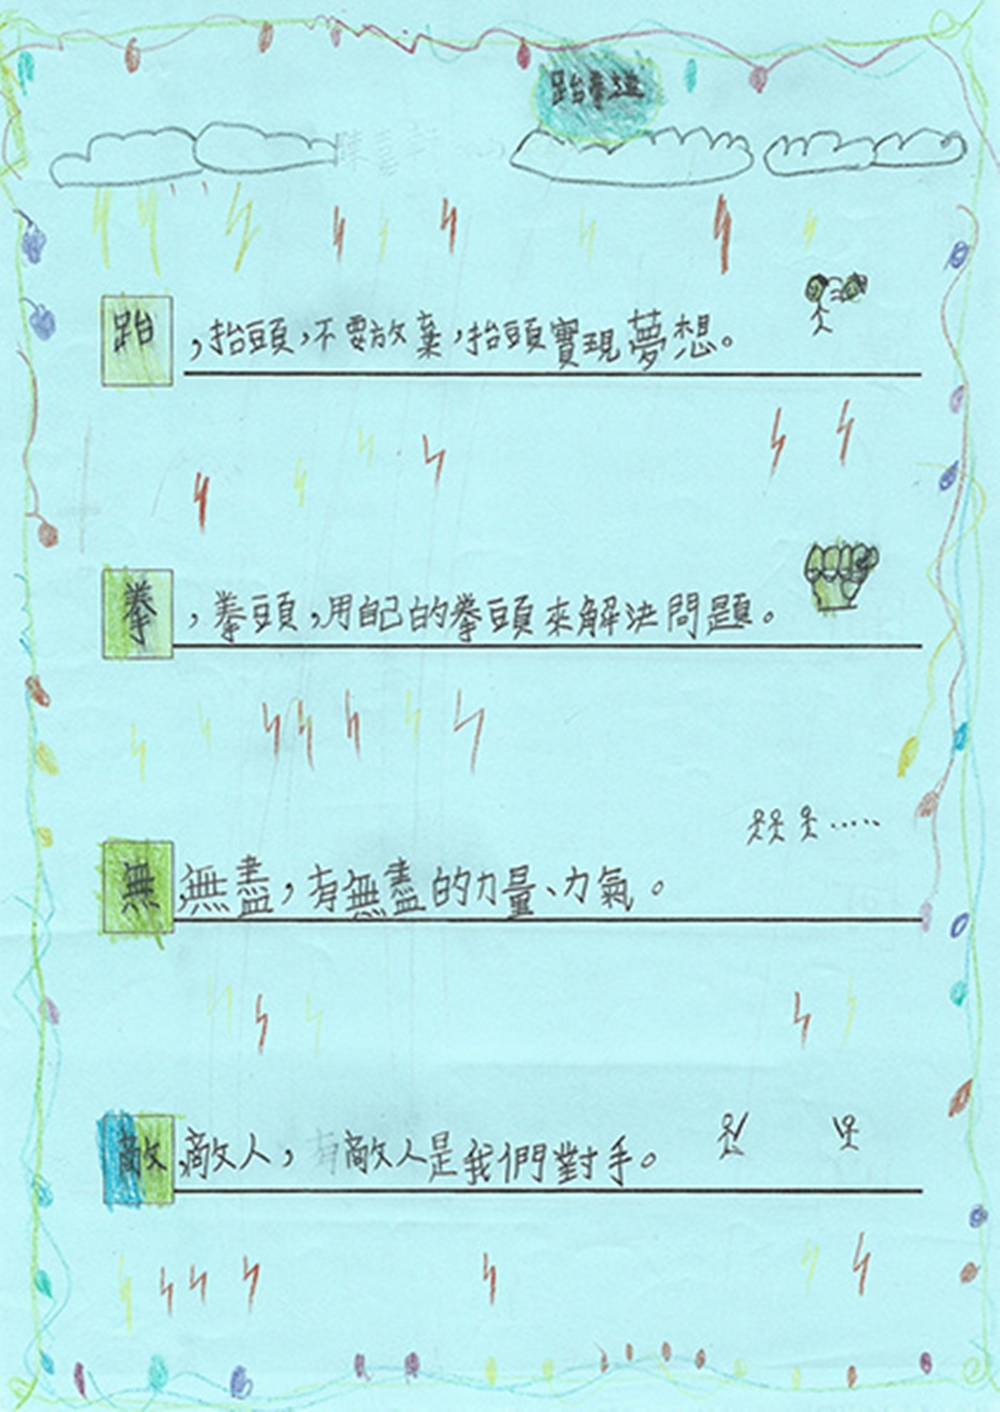 跆拳道
跆,抬頭,不要放棄,抬頭實現夢想。
拳,拳頭,用自己的拳頭來解決問題。
無,無盡,有無盡的力量、力氣。
敵,敵人,有敵人是我們對手。